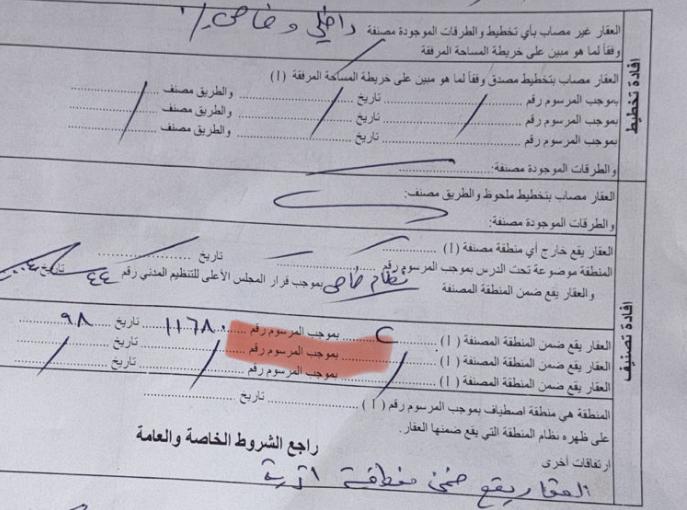 العقار غير مصاب بأي تخطيط والطرقات الموجودة مصنفة داخلي و خاص
وفقاً لما هو مبين على خريطة المساحة المرفقة
إفادة تخطيط
العقار مصاب بتخطيط مصدق وفقاً لما هو مبين على خريطة المساحة المرفقة (١)
بموجب المرسوم رقم ........ تاريخ ........ والطريق مصنف ........
بموجب المرسوم رقم ........ تاريخ ........ والطريق مصنف ........
بموجب المرسوم رقم ........ تاريخ ........ والطريق مصنف ........
والطرقات الموجودة مصنفة: ........
العقار مصاب بتخطيط ملحوظ والطريق مصنف:
والطرقات الموجودة مصنفة:
إفادة تصنيف
العقار يقع خارج أي منطقة مصنفة (١) ........
المنطقة موضوعة تحت الدرس بموجب المرسوم رقم ........ تاريخ ........
والعقار يقع ضمن المنطقة المصنفة نظام خاص بموجب قرار المجلس الأعلى للتنظيم المدني رقم ٤٤ تاريخ
العقار يقع ضمن المنطقة المصنفة (١) ........ بموجب المرسوم رقم ١١٦٨٠ تاريخ ٩٨
العقار يقع ضمن المنطقة المصنفة (١) ........ بموجب المرسوم رقم ........ تاريخ ........
العقار يقع ضمن المنطقة المصنفة (١) ........ بموجب المرسوم رقم ........ تاريخ ........
المنطقة هي منطقة اصطياف بموجب المرسوم رقم (١) ........ تاريخ ........
على ظهره نظام المنطقة التي يقع ضمنها العقار.
راجع الشروط الخاصة والعامة
ارتفاقات أخرى
العقار يقع ضمن منطقة اثرية